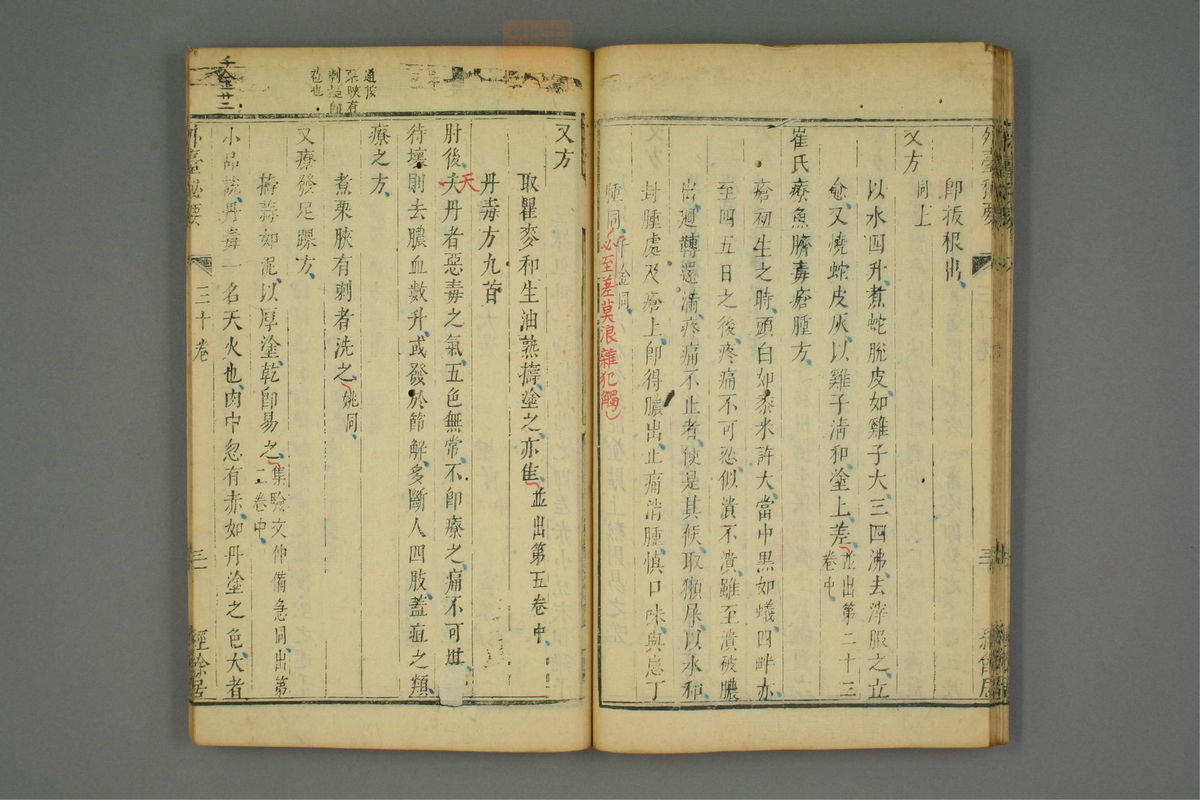 即拔根出
又方同上
以水四升煮蛇脫皮如雞子大三四沸去滓服之立
愈又燒蛇皮灰以雞子清和塗上差並出第二十三卷中
崔氏療魚臍毒瘡腫方
瘡初生之時頭白如黍米許大當中黑如蟻四畔赤
至四五日之後疼痛不可忍似潰不潰雖至潰被膿
出迴轉還滿疼痛不止者便是其候取獺屎以水和
封腫處及瘡上即得膿出止痛消腫慎口味與患丁
腫同千金同
必至差莫浪雜犯觸
又方
取瞿麥和生油熟擣塗之亦佳並出第五卷中
丹毒方九首
肘後夫丹者惡毒之氣五色無常不即療之痛不可堪
天
待壞則去膿血數升或發於節解多斷人四肢蓋疽之類
療之方
煮栗脥有刺者洗之姚同
又療發足踝方
擣蒜如泥以厚塗乾即易之集驗文仲備急同出第二卷中
小品說丹毒一名天火也肉中忽有赤如丹塗之色大者
外臺秘要
三十卷
三一
經餘居
千金廿二